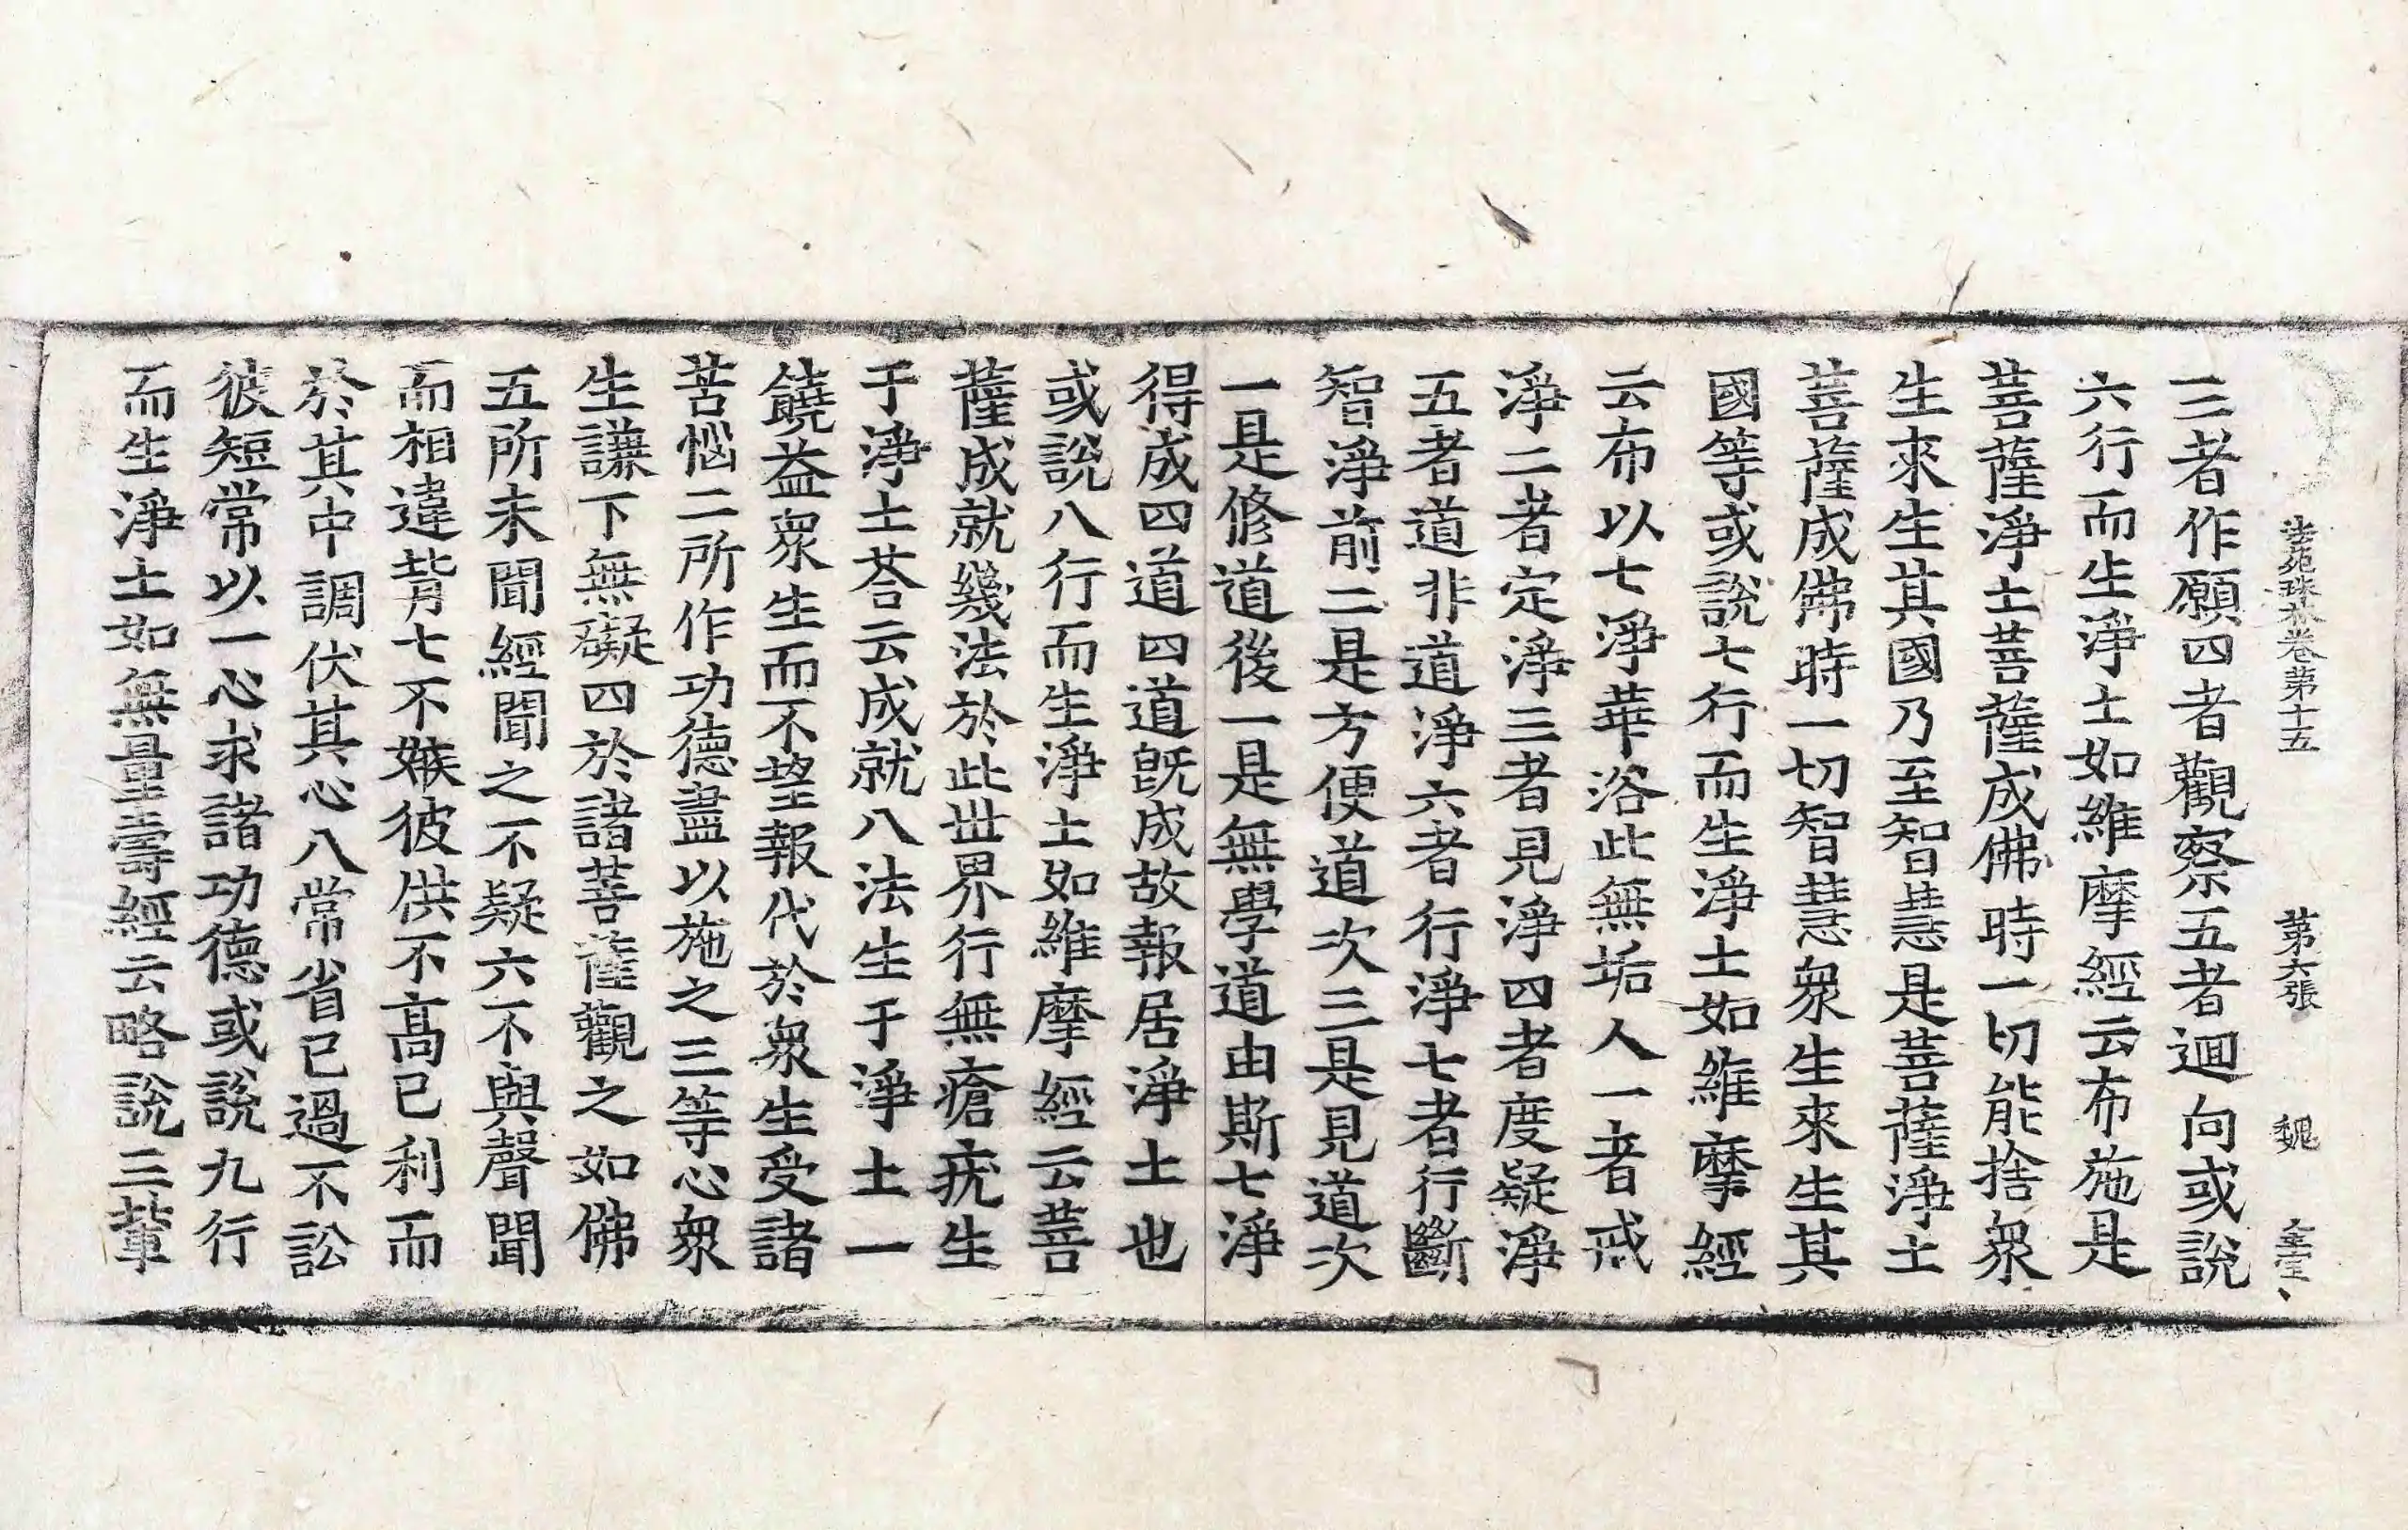 法苑珠林卷第十五 第六張 魏
三者作願四者觀察五者迴向或說
六行而生淨土如維摩經云布施是
菩薩淨土菩薩成佛時一切能捨衆
生來生其國乃至智慧是菩薩淨土
菩薩成佛時一切智慧衆生來生其
國等或說七行而生淨土如維摩經
云布以七淨華浴此無垢人一者戒
淨二者定淨三者見淨四者度疑淨
五者道非道淨六者行淨七者行斷
智淨前二是方便道次三是見道次
一是修道後一是無學道由斯七淨
得成四道四道旣成故報居淨土也
或說八行而生淨土如維摩經云菩
薩成就幾法於此世界行無瘡疣生
于淨土荅云成就八法生于淨土一
饒益衆生而不望報代於衆生受諸
苦惱二所作功德盡以施之三等心衆
生謙下無礙四於諸菩薩觀之如佛
五所未聞經聞之不疑六不與聲聞
而相違背七不嫉彼供不高己利而
於其中調伏其心八常省己過不訟
彼短常以一心求諸功德或說九行
而生淨土如無量壽經云略說三輩